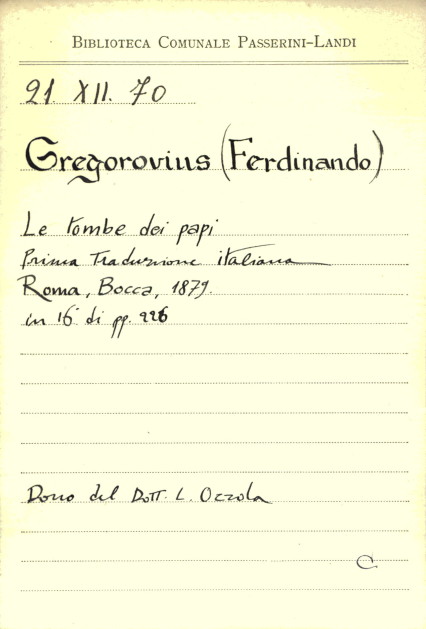 BIBLIOTECA COMUNALE PASSERINI-LANDI
21 XII. 70
Gregorovius (Ferdinando)
Le tombe dei papi
Prima Traduzione italiana
Roma, Bocca, 1879.
in 16° di pp. 226
Dono del Dott. L. Ozzola
C